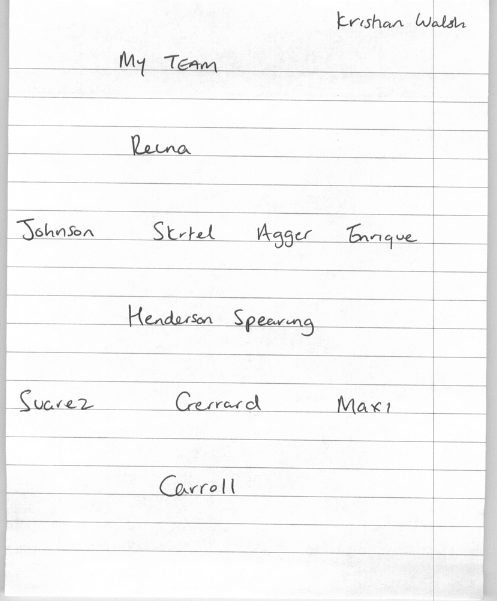 Krishan Walsh
My TEAM
Reina
Johnson Skrtel Agger Enrique
Henderson Spearing
Suarez Gerrard Maxi
Carroll